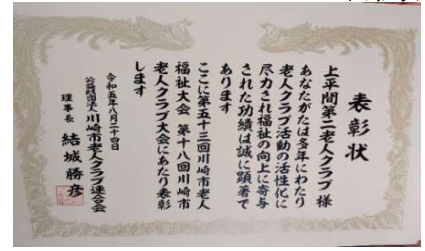 表彰状
上平間第二老人クラブ 様
あなたがたは多年にわたり
老人クラブ活動の活性化に
尽力され福祉の向上に寄与
された功績は誠に顕著で
あります
ここに第五十三回川崎市老人
福祉大会 第十八回川崎市
老人クラブ大会にあたり表彰
します
令和五年八月二十四日
公益財団法人 川崎市老人クラブ連合会
理事長 結城勝彦